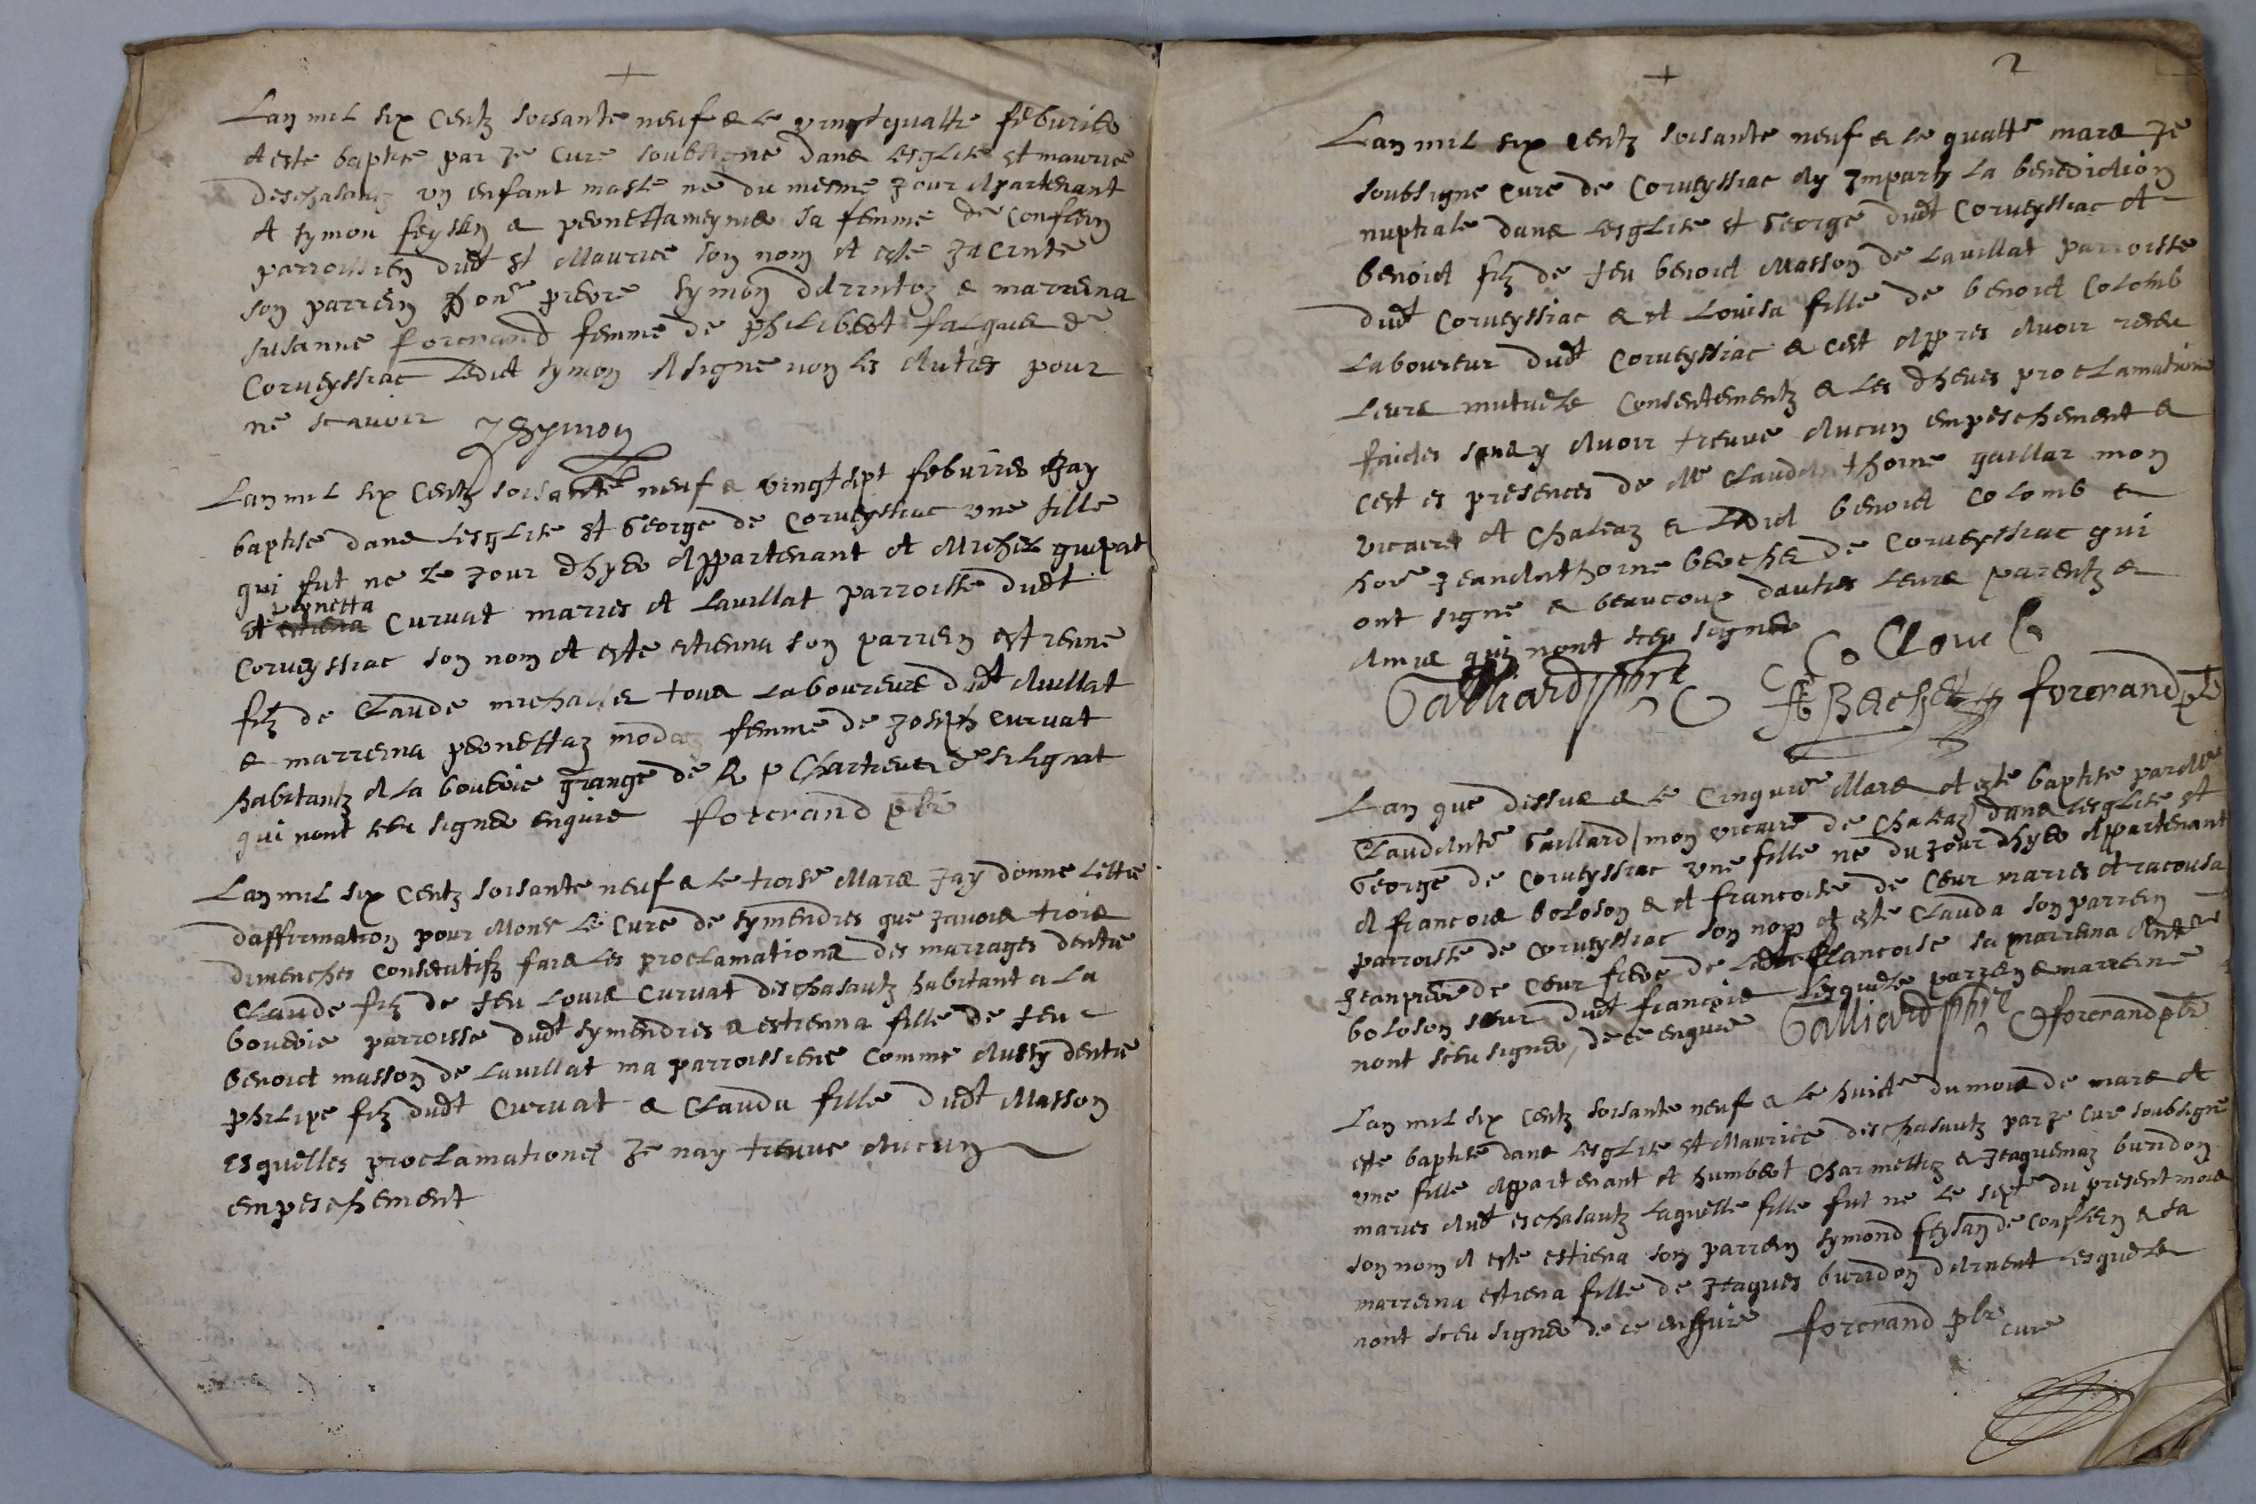 +
Lan mil six Centz soisante neuf & le vingtquattre feburier
A este baptise par Je Cure soubsigne dans lesglise st maurice
deschasautz un enfant masle ne du mesme Jour Apartenant
A symon feyssin & pernetta meynie sa femme de Conflein
parroissien dudt st Maurice son nom A este Jacinte
son parrein Prevre symon & marrina
susanne forcrand femme de philibert falque de
Corveyssiac Ledict symon A signe non les Autres pour
ne scavoir JSymon
Lan mil six Centz soisante neuf & vingtsept feburier Jay
baptise dans lesglise st George de Corveyssiac une fille
qui fut ne Le Jour dhyer Appartenant A Michel guipat
pernetta
et estiena Curvat maries A Lavillat parroisse dudt
Corveyssiac son nom A este estienna son parrein estienne
filz de Claude michallet tous Laboureurs dudt Avillat
& marreina pernettaz femme de Joseph Curvat
habitantz A la bouvrie grange de R P Chartreux de silignat
qui nont sceu signer enquis forcrand pbr
Lan mil six Centz soisante neuf & le troise Mars Jay donne Lettre
daffirmation pour Monsr Le Cure de symendres que Javois trois
dimenches Consecutifz fais les proclamations des marriages dentre
Claude filz de feu Louis Curvat deschasautz habitant a La
bouvrie parroisse dudt symendres & estienna fille de feu
benoict masson de Lavillat ma parroissiene Comme Aussy dentre
philipe filz dudt Curvat & Clauda fille dudt Masson
esquelles proclamations Je nay treuve Aucun
empeschement
+
2
Lan mil six Centz soisante neuf & le quattre mars Je
soubsigne Cure de Corveyssiac Ay Imparty La benediction
nuptiale dans lesglise st George dudt Corveyssiac A
benoict filz de feu benoict Masson de Lavillat parroisse
dudt Corveyssiac & A Louisa fille de benoict Colomb
Laboureur dudt Corveyssiac & cest Appres Avoir receu
leurs mutuels Consentementz & les dheues proclamations
faictes sans y Avoir treuve Aucun empeschement &
cest es presences de Mre Claudanthoine gaillar mon
vicaire A Chaleaz & Ledict benoict Colomb &
honr Jeananthoine berchet de Corveyssiac qui
ont signe & beaucoup dautres leurs parentz &
Amis qui nont sceu signer
Galliard pbre C Clomb
forcrand pbr
Lan que dessus & le Cinquie Mars A este baptise par Mre
Claudante Gaillard mon vicaire de Chaleaz dans lesglise st
George de Corveyssiac une fille ne du Jour dhyer Appartenant
A francois boloson & A francoise de Cour maries A racousa
parroisse de Corveyssiac son nom A este Clauda son parrein
Jeanpierre de Cour frere de Ladte francoise sa marreina Ante
boloson sœur dudt francois Lesquels parrein & marreine
nont sceu signer, de ce enquis Galliard pbre forcrand pbr
Lan mil six Centz soisante neuf & le huicte du mois de mars A
este baptise dans lesglise st Maurice deschasautz par Je Cure soubsigne
une fille Appartenant A humbert Charmettiz & Jeaquemaz buridon
maries Audt eschasautz Laquelle fille fut ne le septe du present mois
son nom A este estiena son parrein symond feysan de Conflein & sa
marreina estiena fille de Jeaques buridon lesquels
nont sceu signer de ce enquis forcrand pbr
cure